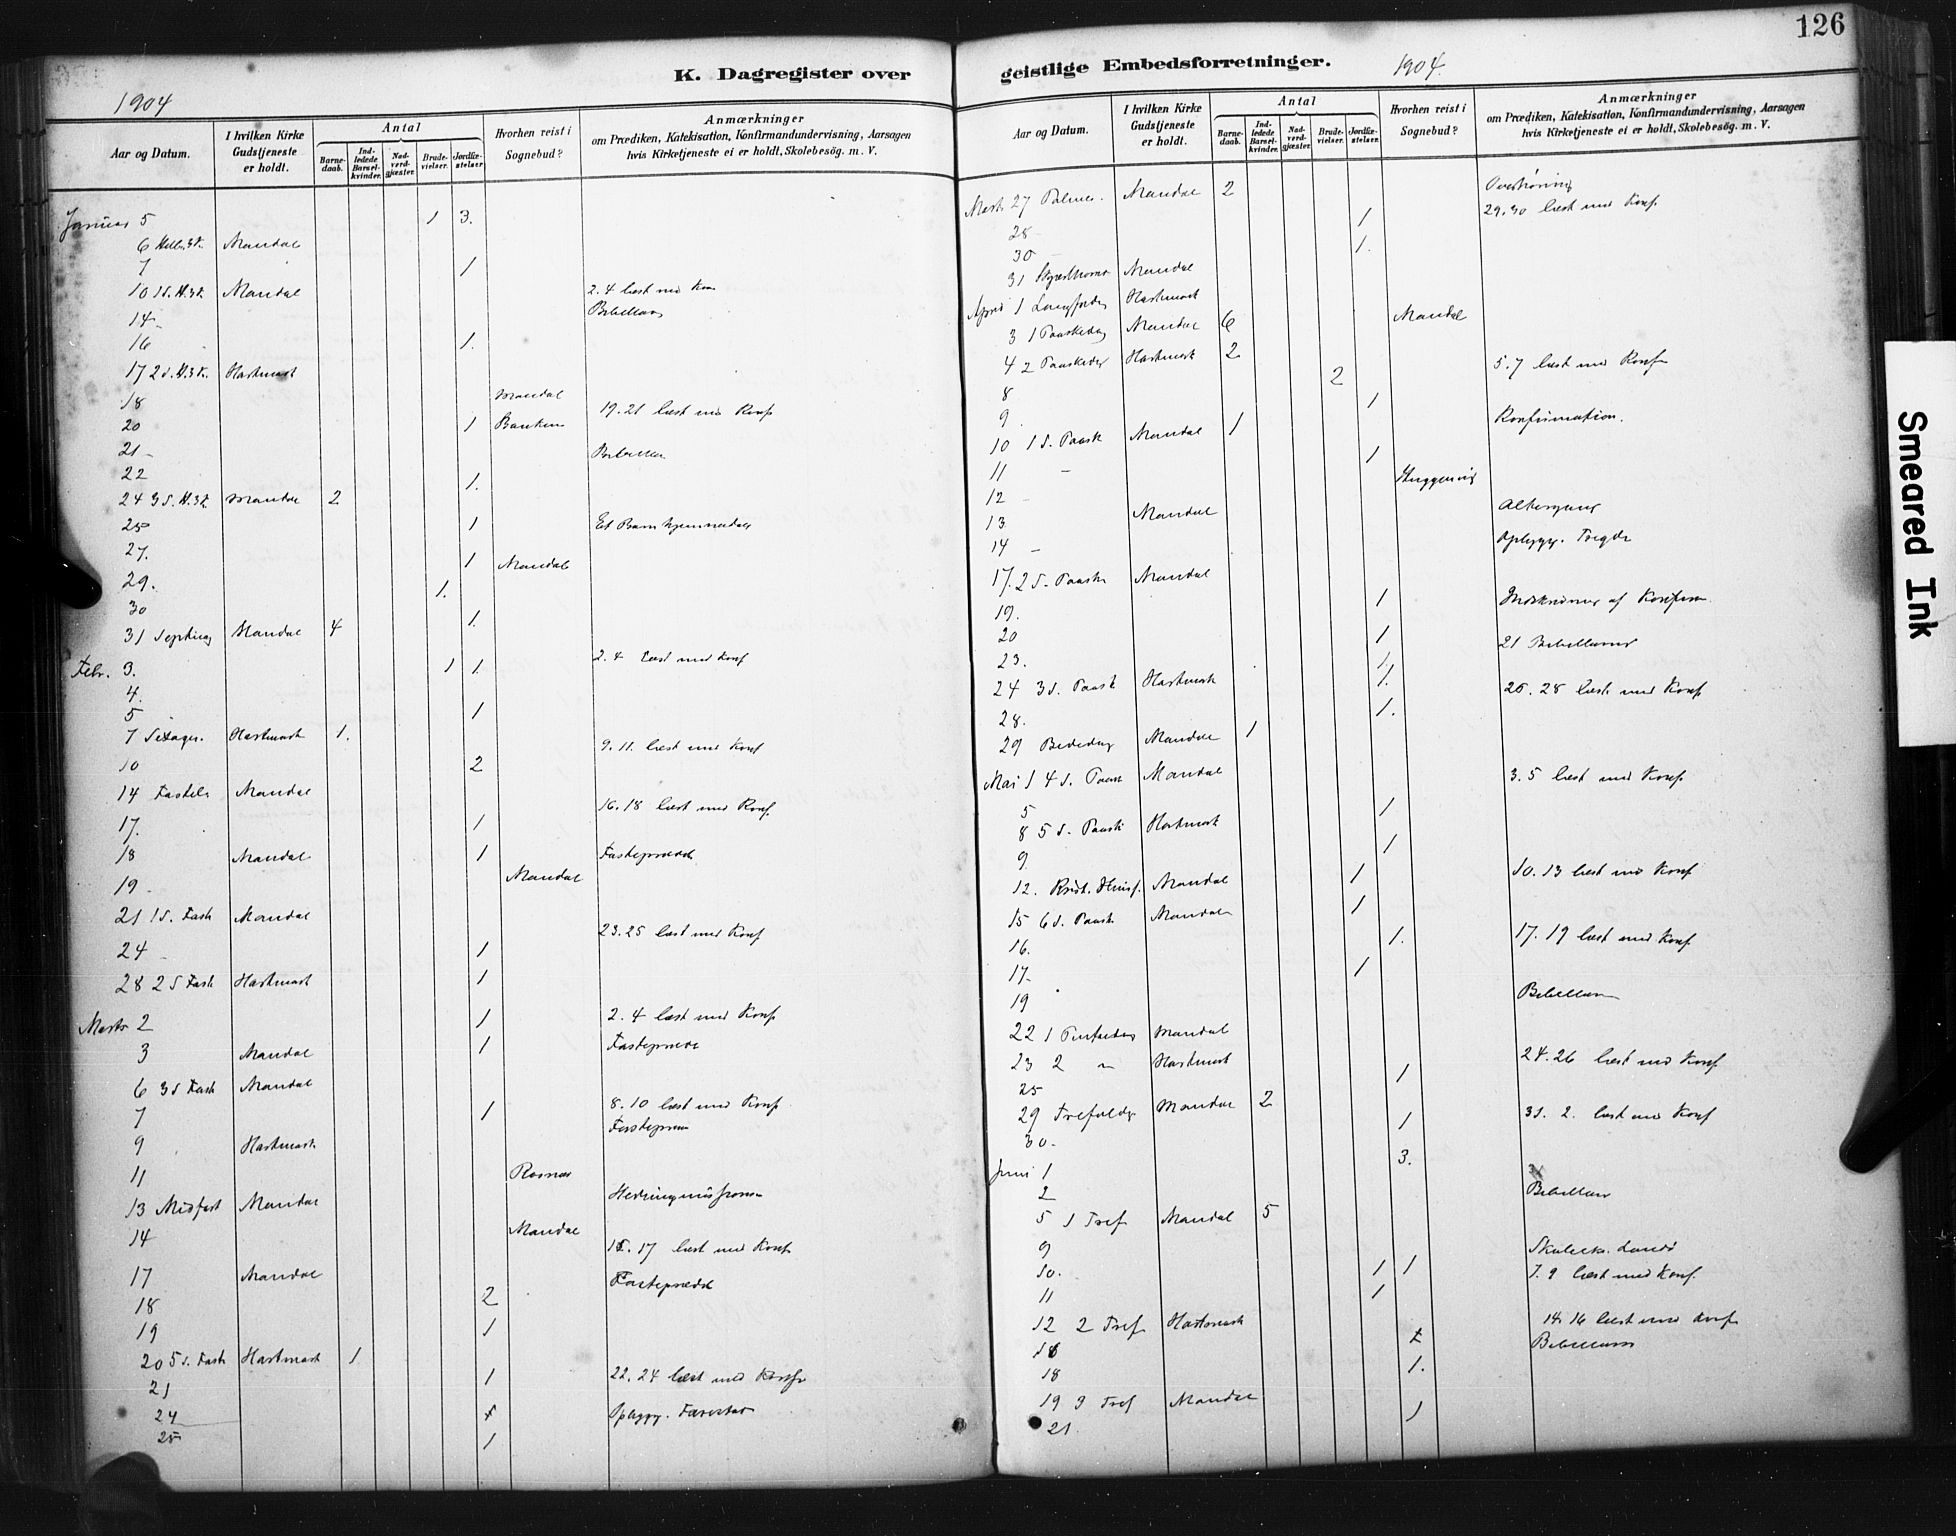 126
K. Dagregister over
1904
Aar og Datum.
I hvilken Kirke Gudstjeneste er holdt.
Antal
Barne-daab.
Ind-ledede Barsel-kvinder.
Nad-verd-gjæster.
Brude-vielser.
Jordfæ-stelser.
Hvorhen reist i Sognebud?
Anmærkninger
om Prædiken, Katekisation, Konfirmandundervisning, Aarsagen hvis Kirketjeneste ei er holdt, Skolebesög. m. V.
Januar 5 1 3.
6 Hell. 3 K. Mandal
7 1
10 1 S. H.3K. Mandal 2.4 læst med
14
16 1.
17 2 S. H.3K. Hartmark
18 Mandal
20 1 19.21 læst med Konf
21
22 1.
24 3 S. H.3K. Mandal 2
25 1 Et Barn hjemmedøbt
27. 1 Mandal
29. 1.
30 1.
31 Mandal 4
Febr. 3. 1 1. 2.4 læst med Konf
4.
5 1
7 Sexages. Hartmark 1.
10 2 9.11. læst med Konf
14 Fastel. Mandal
17. 1 16.18 læst med Konf.
18 Mandal 1 Fastepræd
19 Mandal
21 1 S. Fast Mandal
24 1 23.25 læst med Konf
28 2 S Fast Hartmark 1
Marts 2 1 2.4 læst med Konf
3 Mandal 1 Fastepræd
6 3 S Fast Mandal
7 1 8.10 læst med Konf
9 Hartmark
11
13 Midfast Mandal
14 Mandal
17 Mandal 15.17 læst med Konf
18 2 Fastepræd
19 1
20 5 S. Fast Hartmark 1
21 1 22.24 læst med Konf
24
25 1
geistlige Embedsforretninger.
1904.
Aar og Datum.
I hvilken Kirke Gudstjeneste er holdt.
Antal
Barne-daab.
Ind-ledede Barsel-kvinder.
Nad-verd-gjæster.
Brude-vielser.
Jordfæ-stelser.
Hvorhen reist i Sognebud?
Anmærkninger
om Prædiken, Katekisation, Konfirmandundervisning, Aarsagen hvis Kirketjeneste ei er holdt, Skolebesög. m. V.
Marts 27 Palmes. Mandal 2 Overhøring
28 1 29.30 læst med Konf
30 1.
31 Mandal
April 1 Langfredag Hartmark
3 1 Paaskedag Mandal 6 Mandal
4 2 Paaskedag Hartmark 2
8 2 5.7 læst med Konf
9 1
10 1 S. Paask Mandal 1 Konfirmation.
11 1
12
13 Mandal Altergang
14 Opbygg. Tregde
17. 2 S. Paaske Mandal
19. 1 Indskrivning af Konfirm
20 1
23. 1 21
24 3 S. Paask Hartmark 1.
28. 1. 26.28 læst med Konf
29 Bededag Mandal 1
Mai 1 4 S. Paask Mandal
5 1 3.5 læst med Konf
8 5 S. Paask Hartmark
9 1
12. Krist. Himf. Mandal 1 10.13 læst med Konf
15 6 S. Paask Mandal 1
16. 1. 17.19 læst med Konf
17 1
19
22 1 Pintsedag Mandal
23 2 " Hartmark
25 1 24.26 læst med Konf
29 Trefoldg Mandal 2
30 1 31.2. læst med Konf
Juni 1 3.
2
5 1 Tref Mandal 5
9
10. 1 1 7.9 læst med Konf.
11 1
12 2 Tref Hartmark 14.16 læst med Konf
16
18 1.
19 3 Tref Mandal
21 1
Smeared Ink